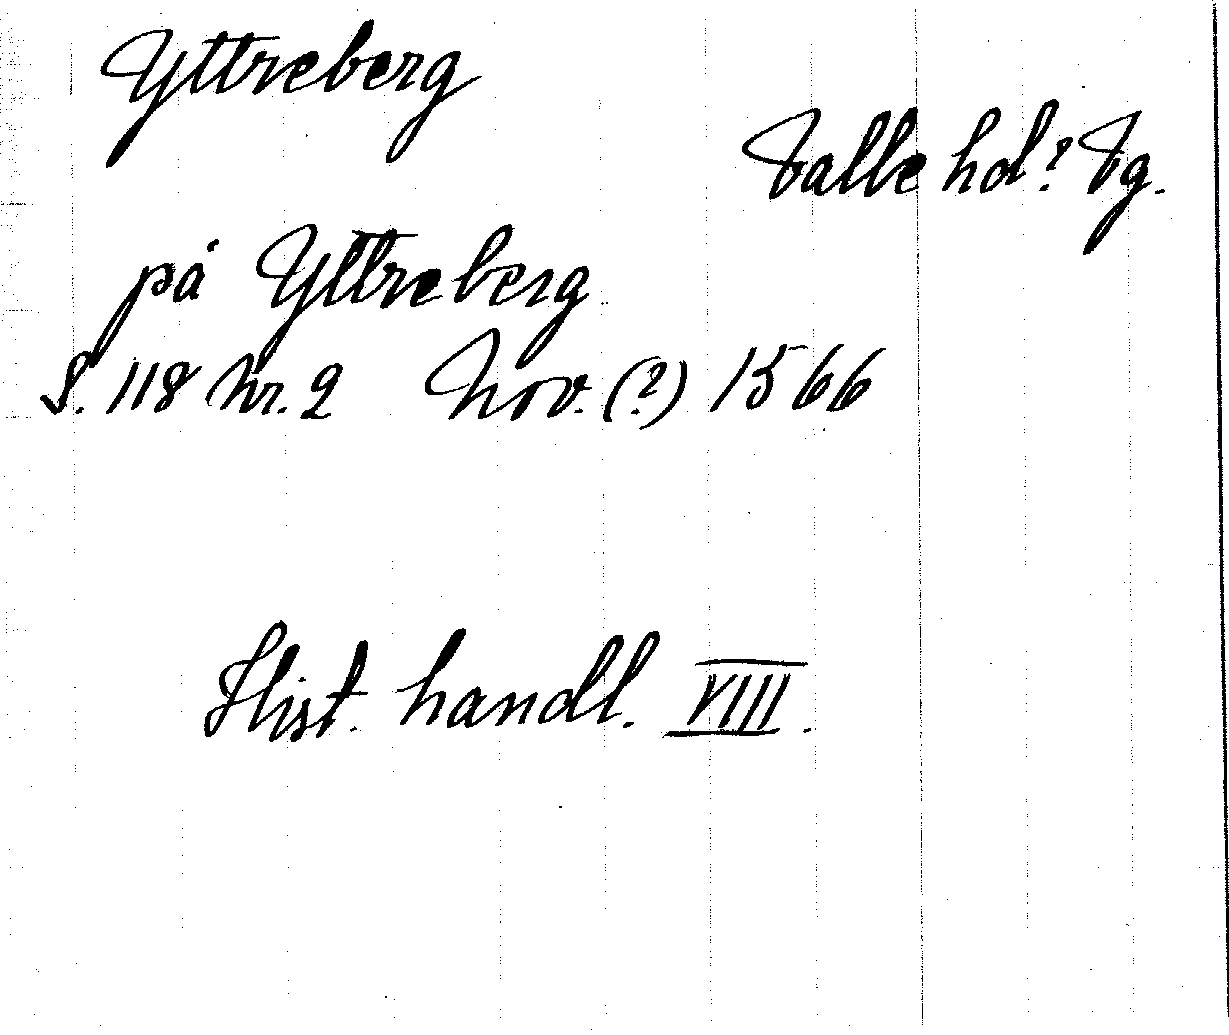 Yttreberg
Valle hd? Vg.
på Yttreberg
S. 118 Nr. 2 Nov. (?) 1566
Hist. handl. VIII.